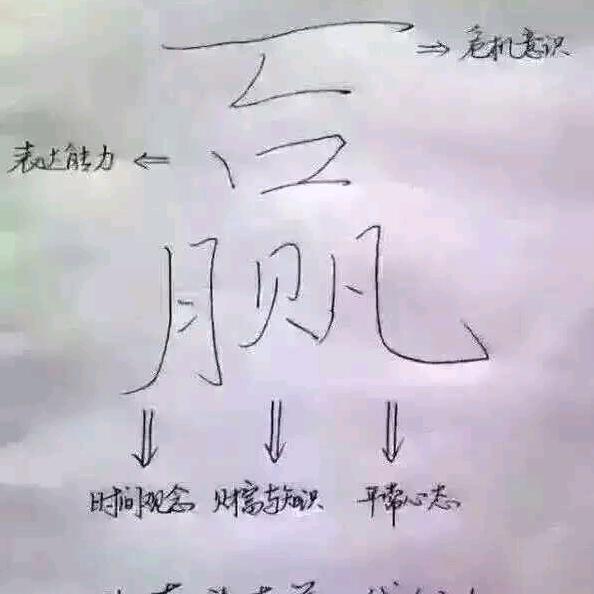 危机意识
赢
表达能力
时间观念 财富与知识 平常心态